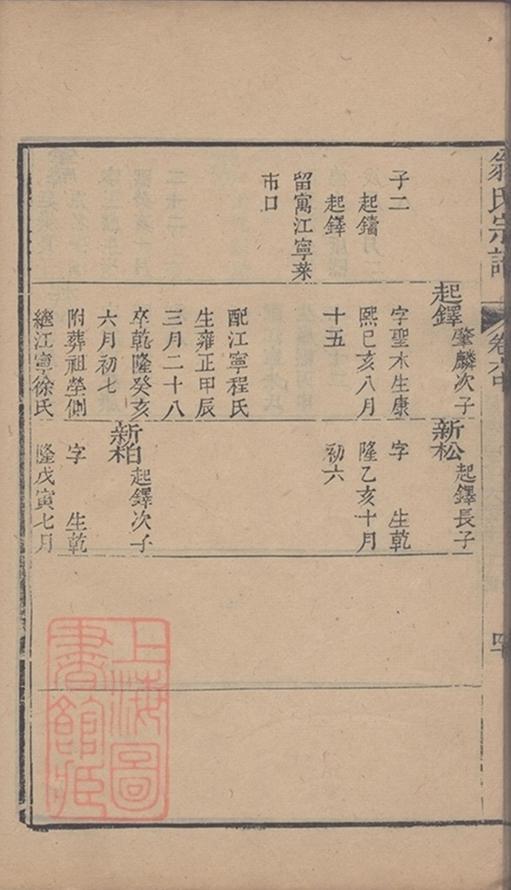 氏宗譜
卷六
子二
起鑄
起鐸
留寓江寧萊
市口
起鐸 肇麟次子
字聖木生康
熙己亥八月
十五
配江寧程氏
生雍正甲辰
三月二十八
卒乾隆癸亥
六月初七
附葬祖塋側
繼江寧徐氏
新松 起鐸長子
字 生乾
隆乙亥十月
初六
新柏 起鐸次子
字 生乾
隆戊寅七月
上海圖
書館藏